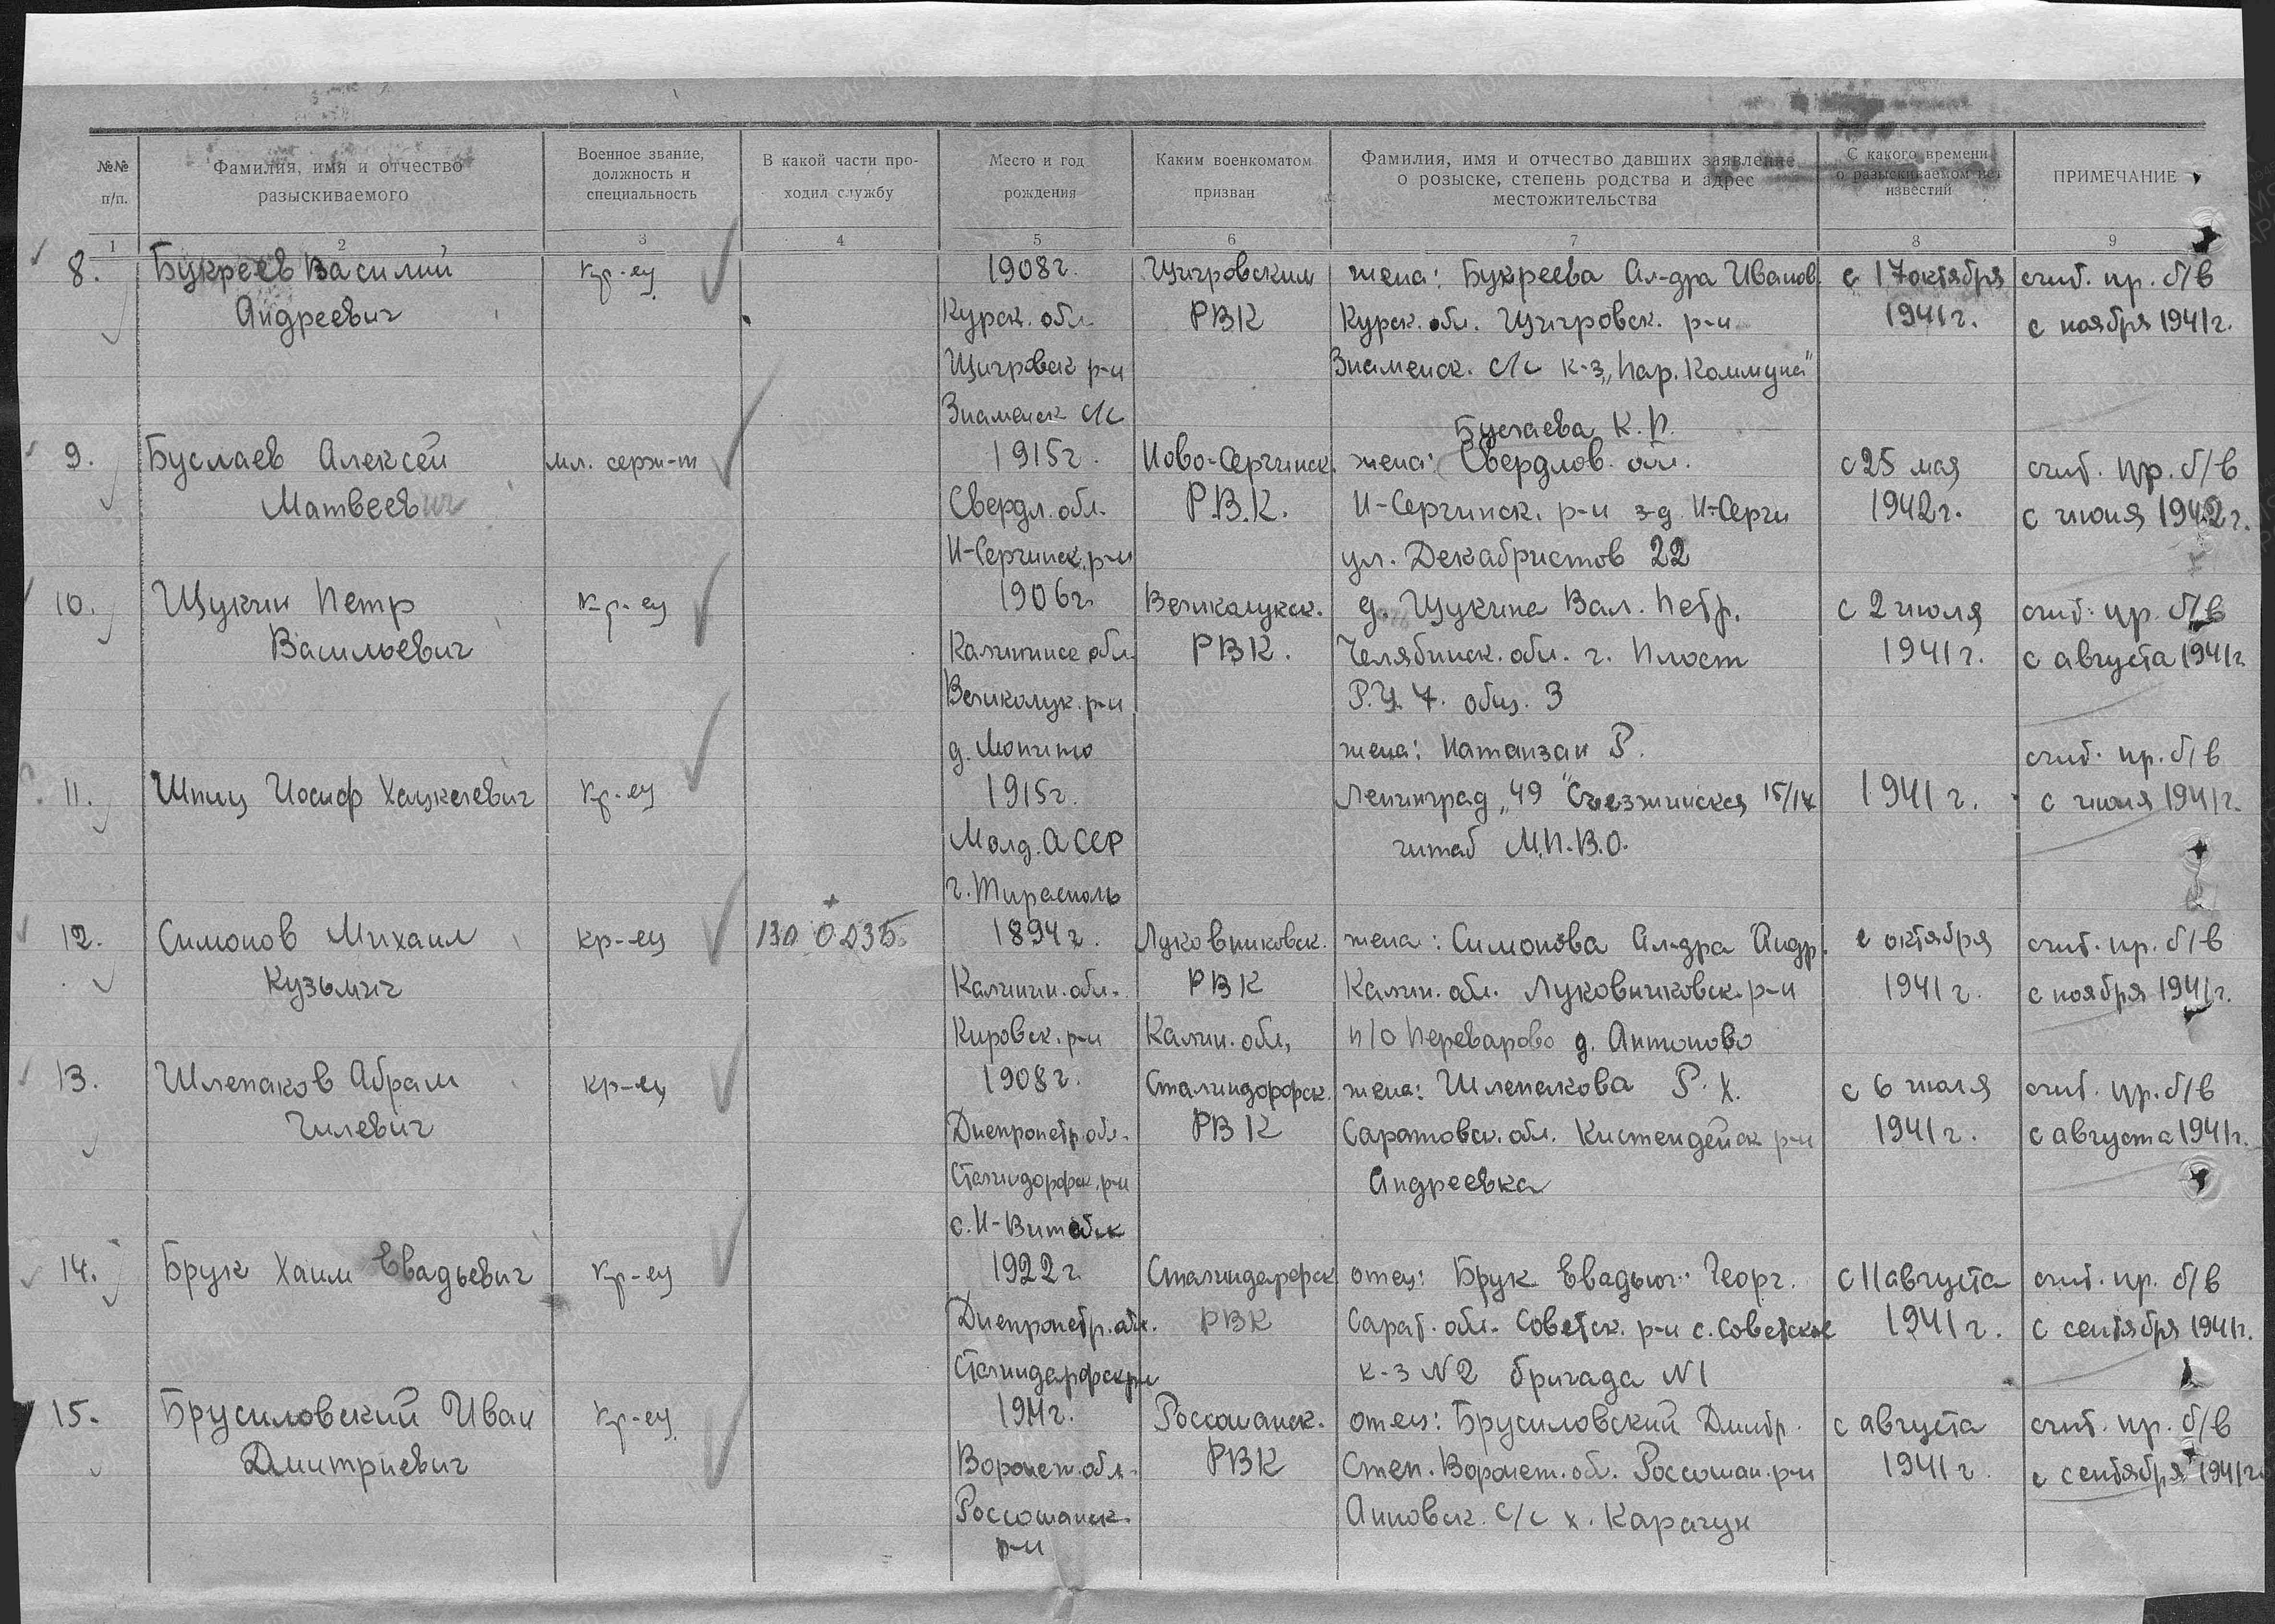 №№ п/п.
Фамилия, имя и отчество разыскиваемого
Военное звание, должность и специальность
В какой части проходил службу
Место и год рождения
Каким военкоматом призван
Фамилия, имя и отчество давших заявление о розыске, степень родства и адрес местожительства
С какого времени о разыскиваемом нет известий
ПРИМЕЧАНИЕ
1 2 3 4 5 6 7 8 9
8. Букреев Василий кр-ец 1908г. Щигровским жена: Букреева Ал-дра Иванов. с 17 октября счит. пр. б/в
Андреевич Курск. обл. РВК Курск. обл. Щигровск. р-н 1941г. с ноября 1941г.
Щигровск р-н Знаменск. с/с к-з „Пар. Коммуна"
Знаменск с/с
Буслаева К. П.
9. Буслаев Алексей мл. серж-т 1915г. Ново-Сергинск. жена: Свердлов. обл. с 25 мая счит. пр. б/в
Матвеевич Свердл. обл. Р.В.К. Н-Сергинск. р-н з-д Н-Серги 1942г. с июня 1942г.
Н-Сергинск. р-н ул. Декабристов 22
10. Щукин Петр кр-ец 1906г. Великолукск. д. Щукина Вал. Петр. с 2 июля счит. пр. б/в
Васильевич Калининск обл. РВК. Челябинск. обл. г. Пласт 1941г. с августа 1941г.
Великолук. р-н Р.У. 7. общ. 3
жена: Натанзан Р. счит. пр. б/в
11. Шпиц Иосиф Хацкелевич кр-ец 1915г. Ленинград „49" Съезжинская 15/17 1941г. с июля 1941г.
Молд. АССР штаб М.П.В.О.
г. Тирасполь
12. Симонов Михаил кр-ец 130 0235 1894г. Луковниковск. жена: Симонова Ал-дра Андр. с октября счит. пр. б/в
Кузьмич Калинин. обл. РВК Калин. обл. Луковниковск. р-н 1941г. с ноября 1941г.
Кировск. р-н Калин. обл, п/о Переварово д. Антоново
13. Шлепаков Абрам кр-ец 1908г. Сталиндорфск. жена: Шлепакова Р. Х. с 6 июля счит. пр. б/в
Гилевич Днепропетр. обл. РВК Саратовск. обл. Кистендейск р-н 1941г. с августа 1941г.
Сталиндорфск. р-н Андреевка
с. Н-Витебск
14. Брук Хаим Евадьевич кр-ец 1922г. Сталиндорфск отец: Брук Евадьюг Георг. с 11 августа счит. пр. б/в
Днепропетр. обл. РВК Сарат. обл. Советск. р-н с. Советское 1941г. с сентября 1941г.
Сталиндорфск р-н к-з N2 бригада N1
15. Брусиловский Иван кр-ец Россошанск. отец: Брусиловский Дмитр. с августа счит. пр. б/в
Дмитриевич Воронеж. обл. РВК Степ. Воронеж. об. Россошан. р-н 1941г. с сентября 1941г.
Россошанск. р-н Анновск. с/с х. Карачун